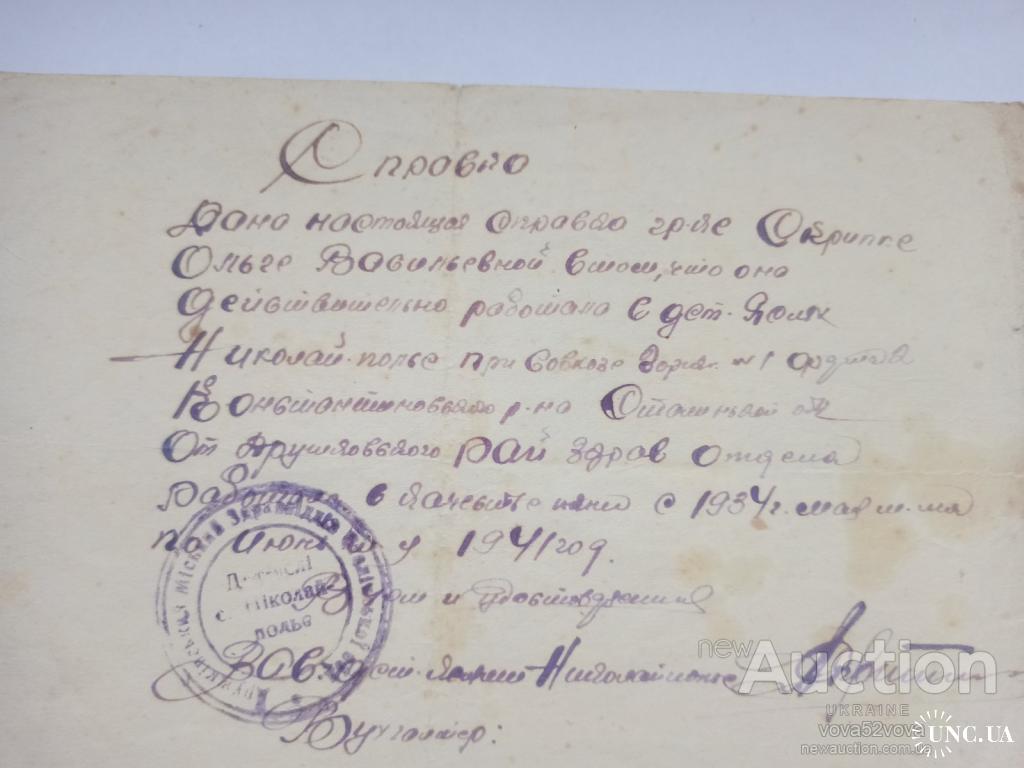 Справка
Дана настоящая справка гр-ке Скрипке
Ольге Васильевной в том, что она
действительно работала в дет. Яслях
Николай-полье при Совхозе Заря №1
Константиновского р-на Сталинской об
От Дружковского Рай здрав отдела
Работала в качестве няни с 1934 г. мая м-ца
по Июнь 1941 год.
В том и удостоверение
Зав. дет. яслями Николайполье
Бухгалтер:
Міський
Дитяслі
с. Ніколай-
полье
newAuction
UKRAINE
vova52vova
newauction.com.ua
UNC.UA